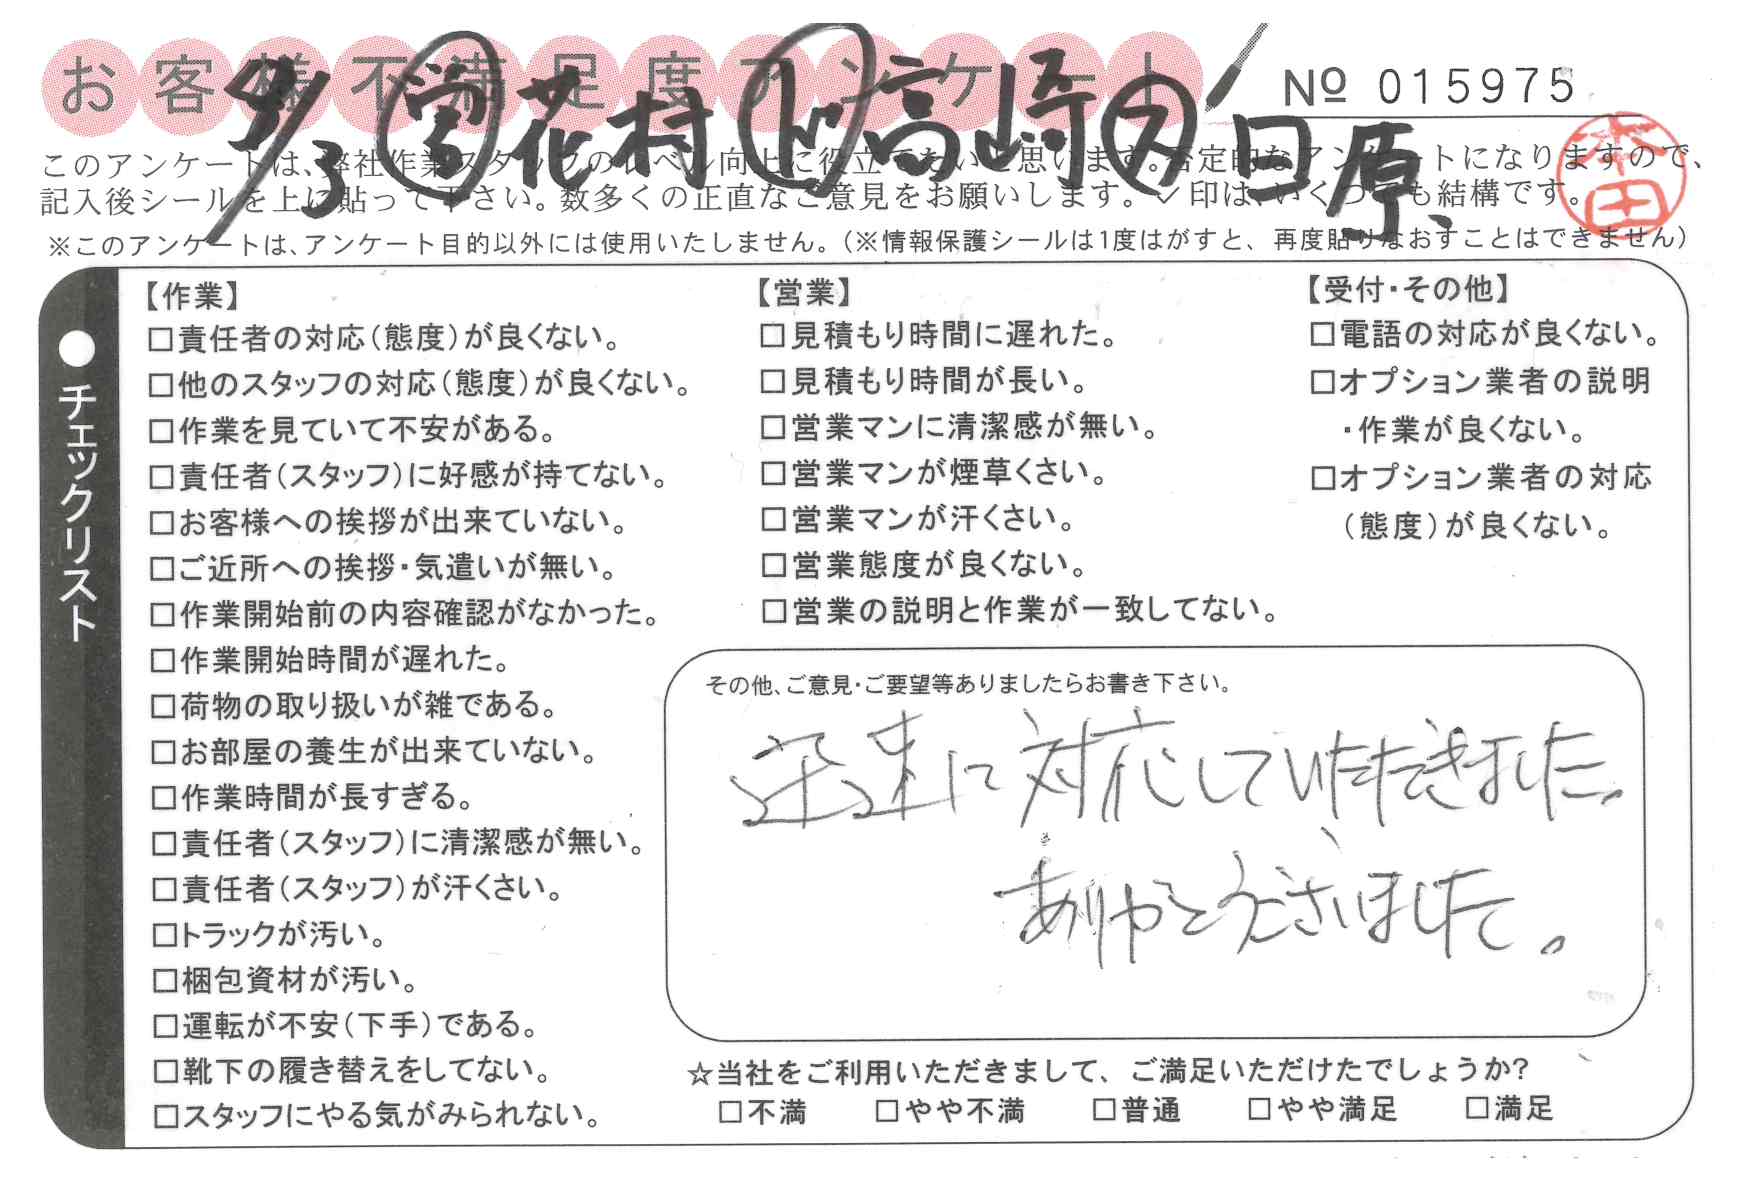 お客様不満足度アンケート
№ 015975
4/3 営 花村 ド 高崎 ス 田原、
本田
このアンケートは、弊社作業スタッフのレベル向上に役立てたいと思います。否定的なアンケートになりますので、
記入後シールを上に貼って下さい。数多くの正直なご意見をお願いします。✓印は、いくつでも結構です。
※このアンケートは、アンケート目的以外には使用いたしません。(※情報保護シールは1度はがすと、再度貼りなおすことはできません)
●チェックリスト
【作業】
□責任者の対応(態度)が良くない。
□他のスタッフの対応(態度)が良くない。
□作業を見ていて不安がある。
□責任者(スタッフ)に好感が持てない。
□お客様への挨拶が出来ていない。
□ご近所への挨拶・気遣いが無い。
□作業開始前の内容確認がなかった。
□作業開始時間が遅れた。
□荷物の取り扱いが雑である。
□お部屋の養生が出来ていない。
□作業時間が長すぎる。
□責任者(スタッフ)に清潔感が無い。
□責任者(スタッフ)が汗くさい。
□トラックが汚い。
□梱包資材が汚い。
□運転が不安(下手)である。
□靴下の履き替えをしてない。
□スタッフにやる気がみられない。
【営業】
□見積もり時間に遅れた。
□見積もり時間が長い。
□営業マンに清潔感が無い。
□営業マンが煙草くさい。
□営業マンが汗くさい。
□営業態度が良くない。
□営業の説明と作業が一致してない。
【受付・その他】
□電話の対応が良くない。
□オプション業者の説明
・作業が良くない。
□オプション業者の対応
(態度)が良くない。
その他、ご意見・ご要望等ありましたらお書き下さい。
迅速に対応していただきました。
ありがとうございました。
☆当社をご利用いただきまして、ご満足いただけたでしょうか?
□不満 □やや不満 □普通 □やや満足 □満足